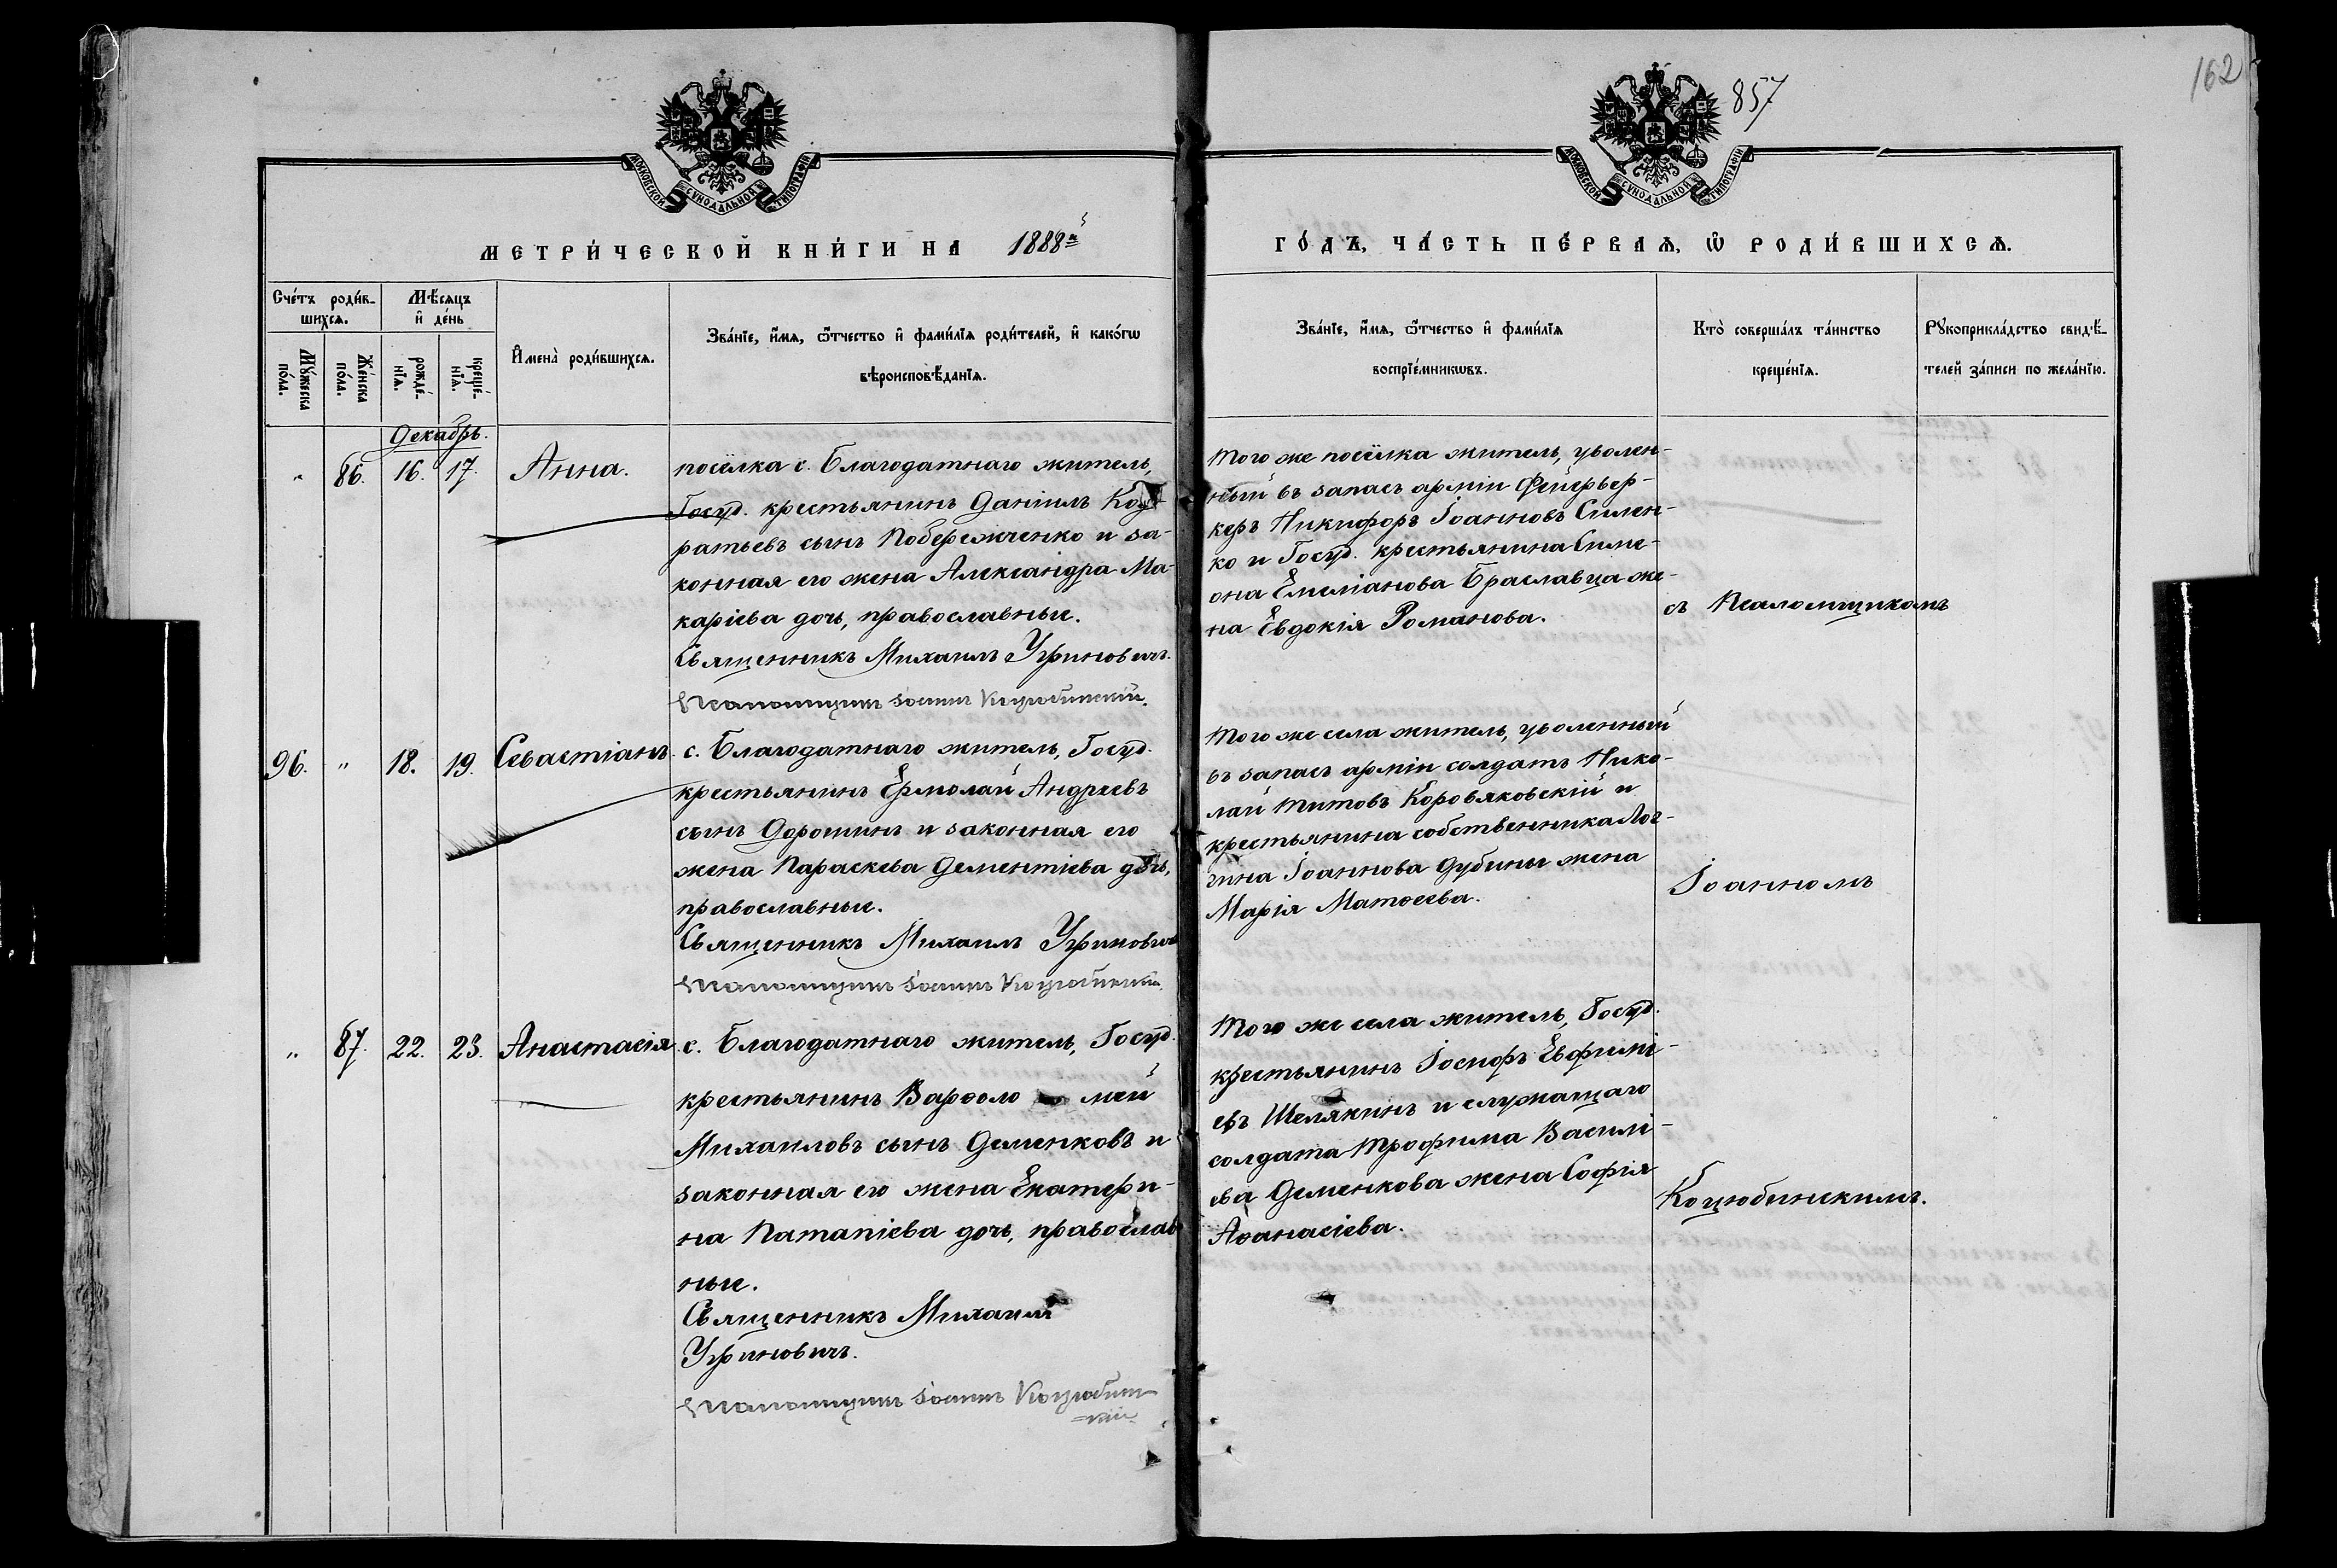 162
857
МОСКОВСКОЙ СѴНОДАЛЬНОЙ ТИПОГРАФІИ
МОСКОВСКОЙ СѴНОДАЛЬНОЙ ТИПОГРАФІИ
МЕТРИ́ЧЕСКОЙ КНИ́ГИ НА 1888й
ГО́ДЪ, ЧА́СТЬ ПЕ́РВАѦ, Ѽ РОДИ́ВШИХСѦ.
Сче́тъ роди́в-
шихсѧ.
Мѣ́сѧцъ
и҆ де́нь
Мꙋ́жеска
по́ла.
Же́нска
по́ла.
рожде́-
нїѧ.
креще́-
нїѧ.
И҆мена̀ роди́вшихсѧ.
Зва́нїе, и҆́мѧ, ѻ҆́тчество и҆ фами́лїѧ роди́телей, и҆ како́гѡ
вѣроисповѣ́данїѧ.
Зва́нїе, и҆́мѧ, ѻ҆́тчество и҆ фами́лїѧ
воспрїе́мникѡвъ.
Кто̀ соверша́лъ та́инство
креще́нїѧ.
Рꙋкоприкла́дство свидѣ́-
телей за́писи по жела́нїю.
Декабрь.
" 86. 16. 17. Анна.
посёлка с. Благодатнаго житель,
Госуд. крестьянинъ Даніилъ Код-
ратьевъ сынъ Побережченко и за-
конная его жена Александра Ма-
каріева дочь, православные.
Священникъ Михаилъ Угриновичъ.
Псаломщикъ Іоаннъ Коцюбинскій.
Того же посёлка житель, уволен-
ный въ запасъ арміи Фейервер-
керъ Никифоръ Іоанновъ Силен-
ко и Госуд. крестьянина Симе-
она Емеліанова Браславца же-
на Евдокія Романова.
съ Псаломщикомъ
96. " 18. 19. Севастіанъ.
с. Благодатнаго житель, Госуд.
крестьянинъ Ермолай Андреевъ
сынъ Дорошинъ и законная его
жена Параскева Дементіева дочь,
православные.
Священникъ Михаилъ Угриновичъ
Псаломщикъ Іоаннъ Коцюбинскій.
Того же села житель, уволенный
въ запасъ арміи солдатъ Нико-
лай Титовъ Коровяковскій и
крестьянина собственника Лог-
гина Іоаннова Дубины жена
Марія Матѳеева.
Іоанномъ
" 87. 22. 23. Анастасія
с. Благодатнаго житель, Госуд.
крестьянинъ Варѳоло мей
Михаиловъ сынъ Деменковъ и
законная его жена Екатери-
на Патапіева дочь, православ
ные.
Священникъ Михаилъ
Угриновичъ.
Псаломщикъ Іоаннъ Коцюбин-
=скій.
Того же села житель, Госуд.
крестьянинъ Іосифъ Евфимі-
евъ Шелякинъ и служащаго
солдата Трофима Василі-
ева Деменкова жена Софія
Аѳанасіева.
Коцюбинскимъ.